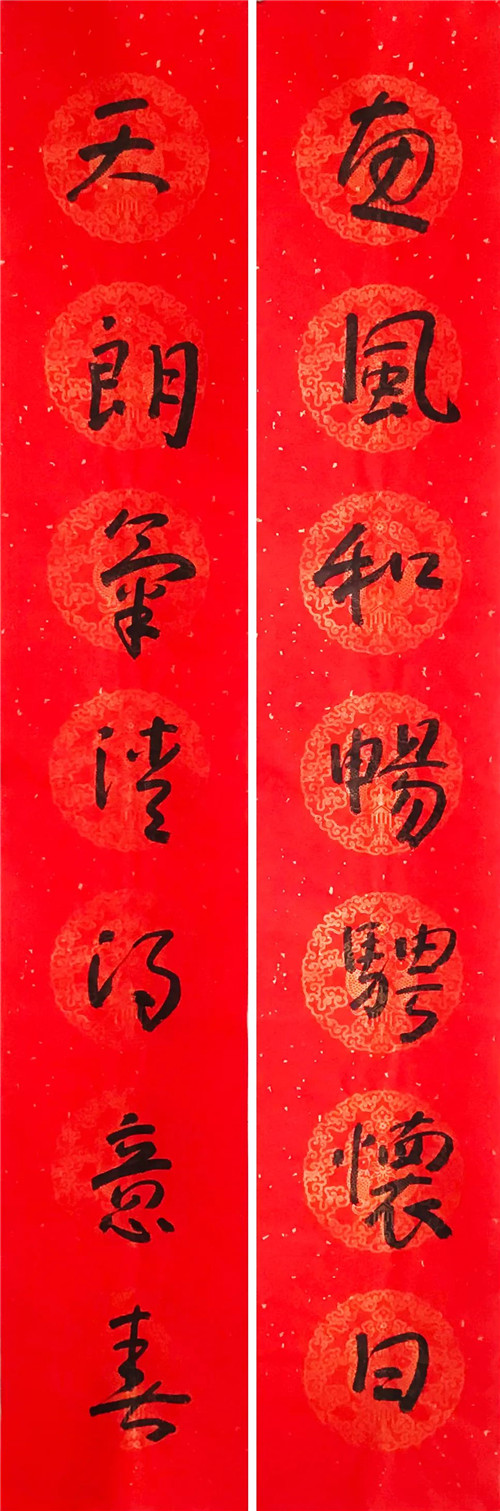 惠風和暢騁懷日
天朗氣清得意春